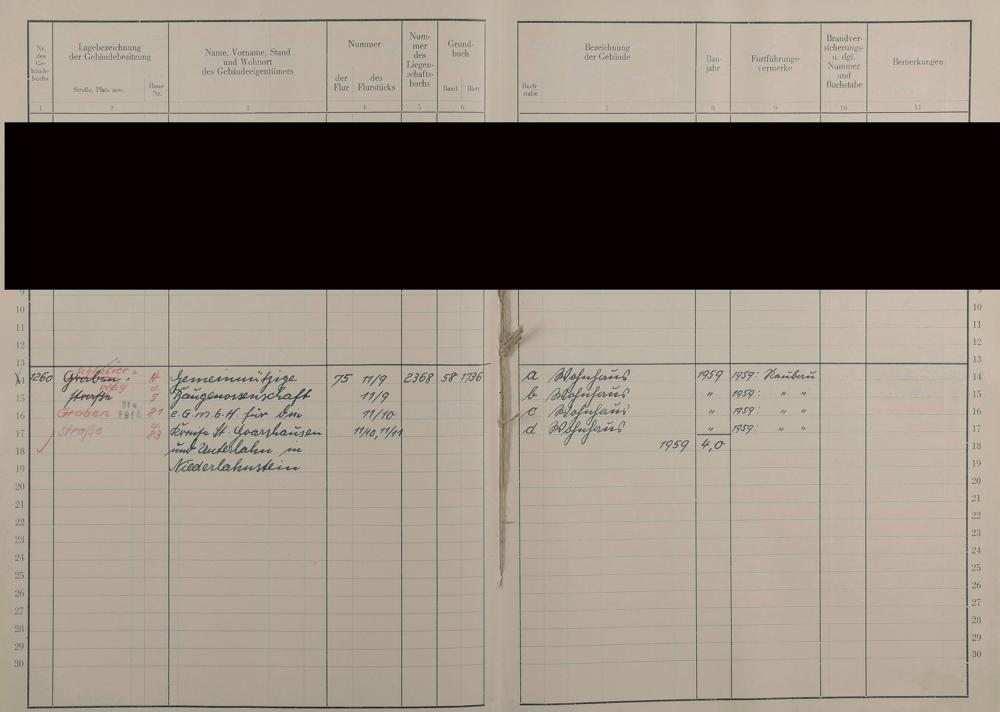 Nr. des Ge- bäude- buchs
Lagebezeichnung der Gebäudebesitzung
Straße, Platz usw.
Haus- Nr.
Name, Vorname, Stand und Wohnort des Gebäudeeigentümers
Nummer
der Flur
des Flurstücks
Num- mer des Liegen- schafts- buchs
Grund- buch
Band
Blatt
Bezeichnung der Gebäude
Buch- stabe
Bau- jahr
Fortführungs- vermerke
Brandver- sicherungs- u. dgl. Nummer und Buchstabe
Bemerkungen
1 2 3 4 5 6 7 8 9 10 11
9
10 10
11 11
12 12
13 13
14 1260 Graben- Gemeinnützige 75 11/9 2368 58 1736 a Wohnhaus 1959 1959: Neubau 14
15 straße 5 Baugenossenschaft 11/9 b Wohnhaus " 1959: " " 15
16 Graben 81 e.G.m.b.H für die 11/10 c Wohnhaus " 1959: " " 16
17 straße 83 Kreise St. Goarshausen 11/10, 11/11 d Wohnhaus " 1959: " " 17
18 und Unterlahn in 1959 4,0 18
19 Niederlahnstein 19
20 20
21 21
22 22
23 23
24 24
25 25
26 26
27 27
28 28
29 29
30 30